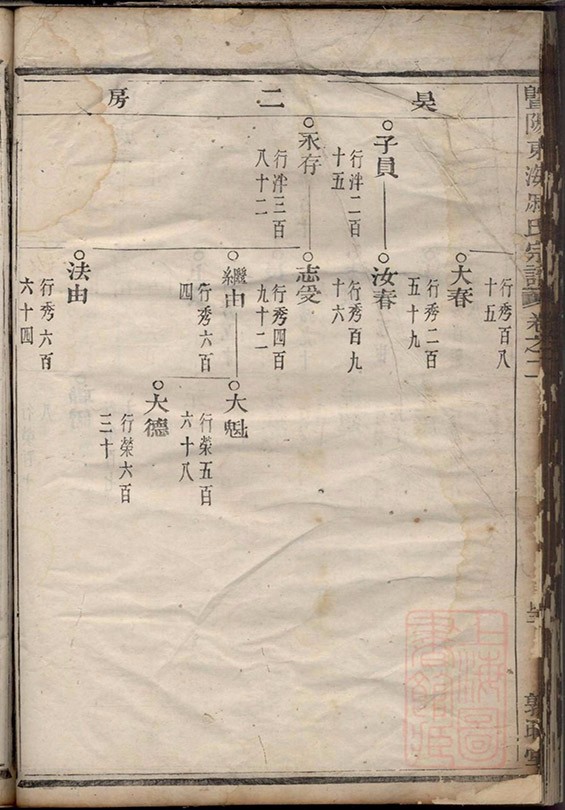 暨陽東海宗譜卷之二
昊二房
大春
行秀百八
十五
子貝
行泮二百
十五
汝春
行秀二百
五十九
永存
行泮三百
八十二
志受
行秀百九
十六
繼由
行秀四百
九十二
大魁
行秀六百
四
法由
大德
行榮五百
六十八
行秀六百
六十四
行榮六百
三十
上海圖書館藏